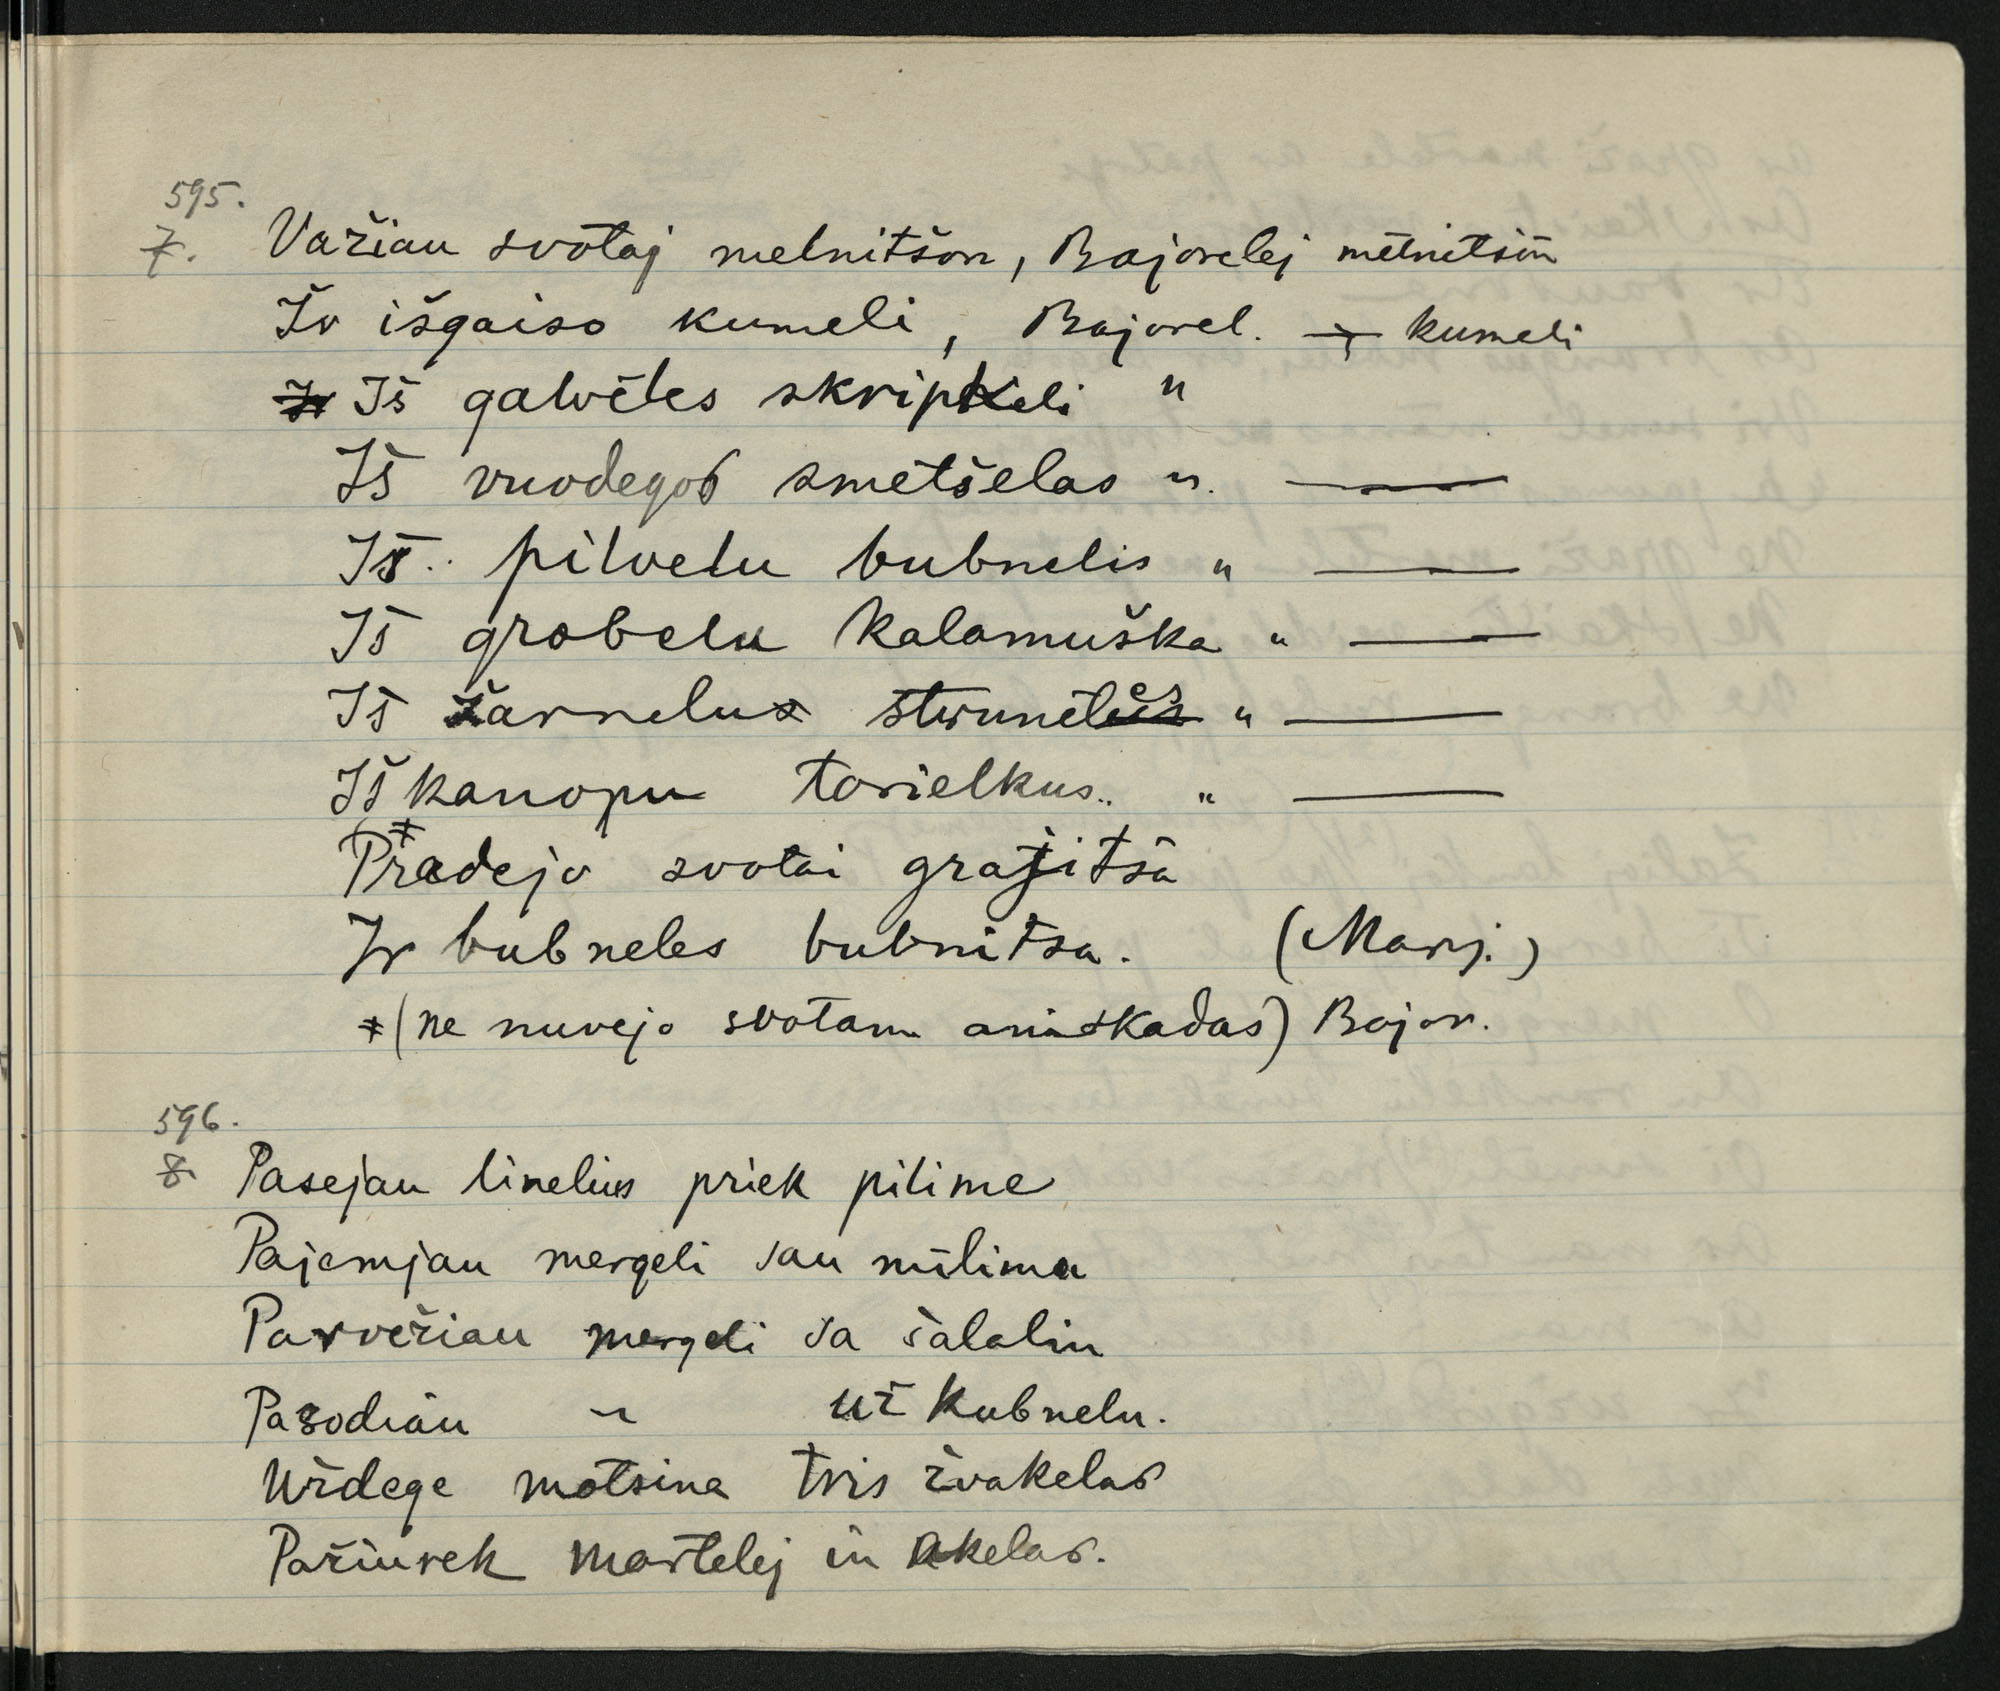 595.
7. Važiau svotaj melnitšon, Bajorelej mēlnitšōn
Ir išgaiso kumeli, Bajorel. — „ — kumeli
Iš galvēles skripkeli "
Iš vuodegos smetšelas ". ———
Iš pilvelu bubnelis " ———
Iš grobelu kalamuška " ———
Iš žarnelu strunelēs " ———
Iš kanopu torielkus.. " ———
Pradejo svotai grajitša
Ir bubneles bubnitsa. (Marij.)
* (ne nuvejo svotam aniskadas) Bajor.
596.
8. Pasejau linelius priek pilime
Pajemjau mergeli sau milima
Parvežiau mergeli sa šalalin
Pasodiau " už kubnelu.
Uždege motsina tris žvakelas
Pažiurek martelej in akelas.